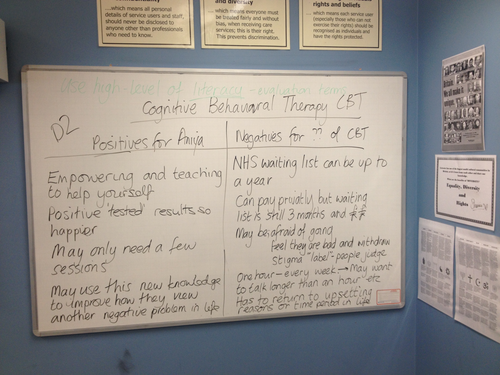 ...which means all personal
details of service users and staff,
should never be disclosed to
anyone other than professionals
who need to know.
and diversity
...which means everyone must
be treated fairly and without
bias, when receiving care
services; this is their right.
This prevents discrimination.
rights and beliefs
...which means each service user
(especially those who can not
exercise their rights) should be
recognised as individuals and
have the rights protected.
Use high level of literacy - evaluation
Cognitive Behavioral Therapy CBT
D2
Positives for Aniya
Empowering and teaching
to help yourself
Positive 'tested' results so
happier
May only need a few
sessions
May use this new knowledge
to improve how they view
another negative problem in life
Negatives for ?? of CBT
NHS waiting list can be up to
a year
Can pay privatly but waiting
list is still 3 months and ££
May be afraid of going
Feel they are bad and withdraw
Stigma "label" - people judge
One hour - every week → May want
to talk longer than an hour etc
Has to return to upsetting
reasons or time period in life
Equality, Diversity
and
Rights